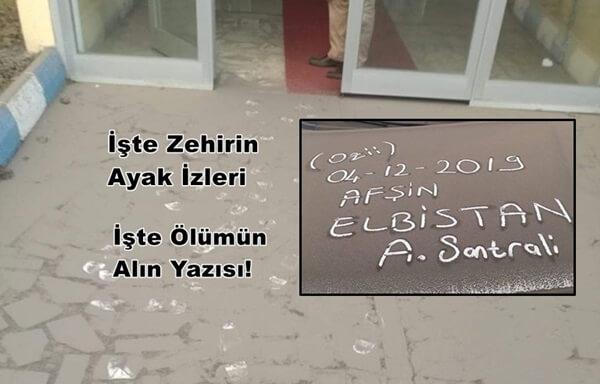 İşte Zehirin
Ayak İzleri
İşte Ölümün
Alın Yazısı!
(Ozii)
04-12-2019
AFŞİN
ELBİSTAN
A. Santrali